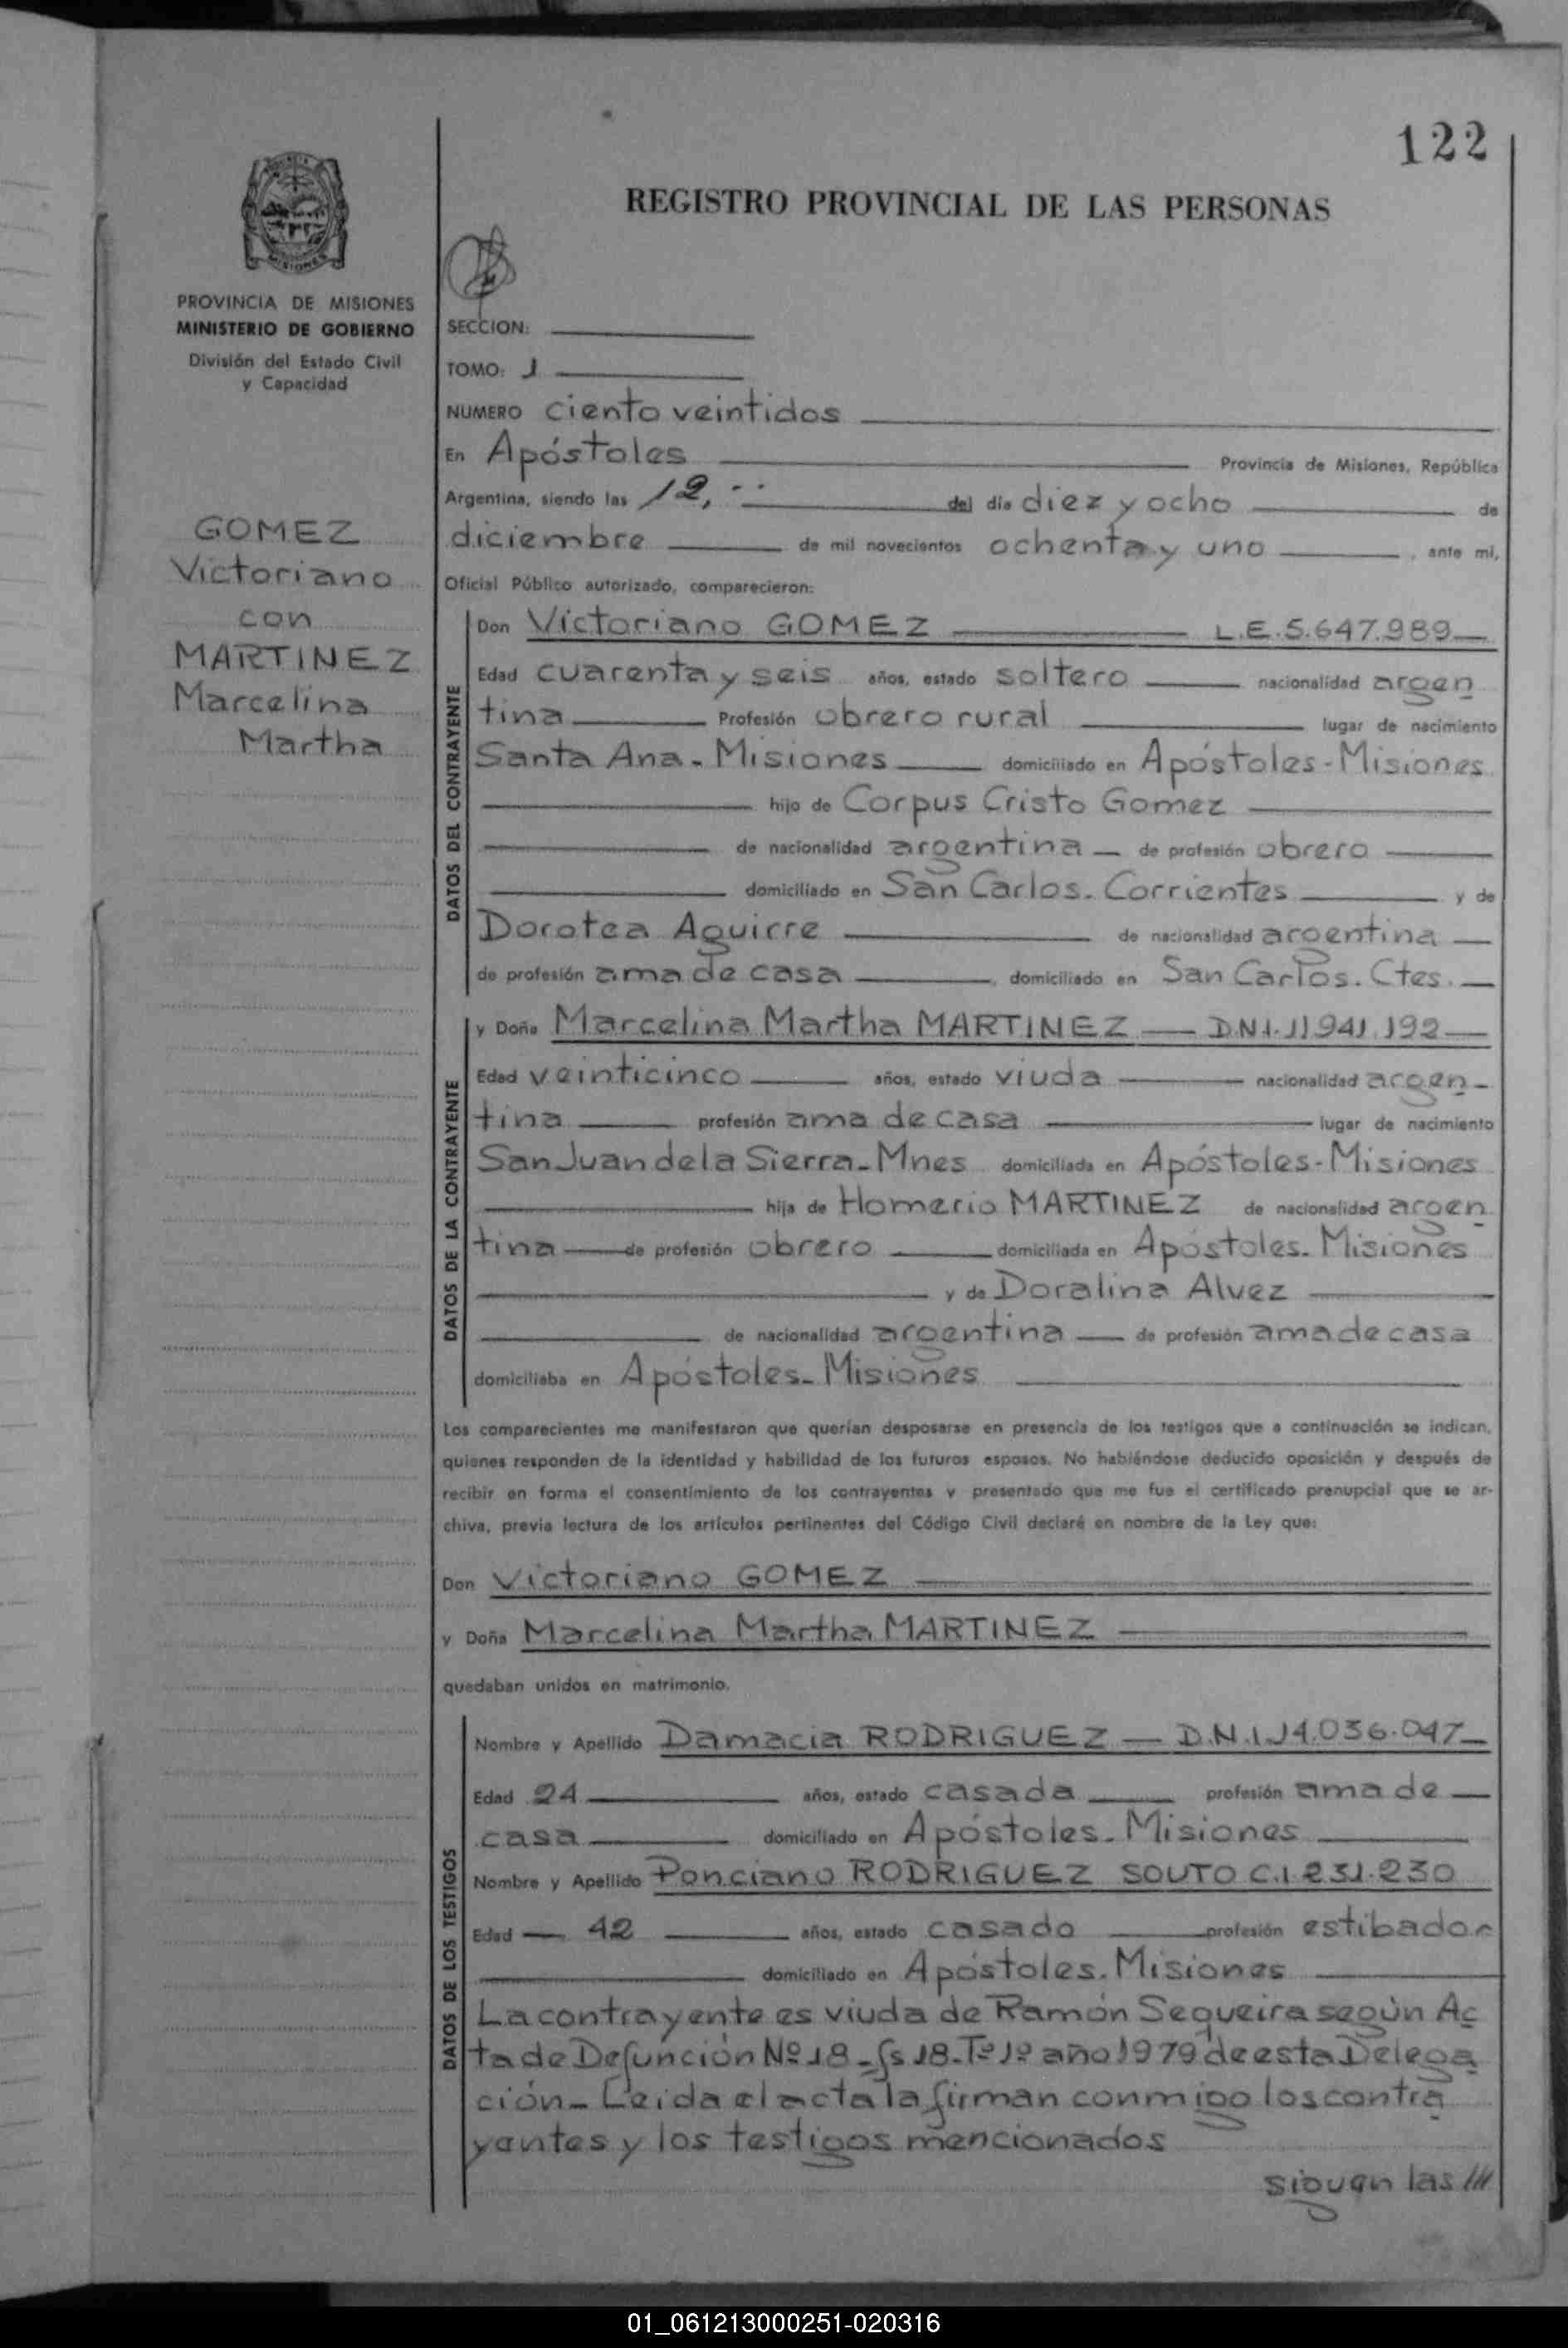 122
REGISTRO PROVINCIAL DE LAS PERSONAS
MISIONES
PROVINCIA DE MISIONES
MINISTERIO DE GOBIERNO
División del Estado Civil
y Capacidad
SECCION:
TOMO: 1
NUMERO ciento veintidos
En Apóstoles Provincia de Misiones, República
Argentina, siendo las 12, del día diez y ocho de
diciembre de mil novecientos ochenta y uno, ante mi,
Oficial Público autorizado, comparecieron:
GOMEZ
Victoriano
con
MARTINEZ
Marcelina
Martha
DATOS DEL CONTRAYENTE
Don Victoriano GOMEZ L.E.5.647.989
Edad cuarenta y seis años, estado soltero nacionalidad argen
tina Profesión obrero rural lugar de nacimiento
Santa Ana - Misiones domiciliado en Apóstoles - Misiones
hijo de Corpus Cristo Gomez
de nacionalidad argentina de profesión obrero
domiciliado en San Carlos. Corrientes y de
Dorotea Aguirre de nacionalidad argentina
de profesión ama de casa, domiciliado en San Carlos. Ctes.
DATOS DE LA CONTRAYENTE
y Doña Marcelina Martha MARTINEZ D.N.I. 11941.192
Edad veinticinco años, estado viuda nacionalidad argen-
tina profesión ama de casa lugar de nacimiento
San Juan de la Sierra - Mnes domiciliada en Apóstoles - Misiones
hija de Homerio MARTINEZ de nacionalidad argen
tina de profesión obrero domiciliada en Apóstoles. Misiones
y de Doralina Alvez
de nacionalidad argentina de profesión ama de casa
domiciliaba en Apóstoles - Misiones
Los comparecientes me manifestaron que querían desposarse en presencia de los testigos que a continuación se indican,
quienes responden de la identidad y habilidad de los futuros esposos. No habiéndose deducido oposición y después de
recibir en forma el consentimiento de los contrayentes y presentado que me fue el certificado prenupcial que se ar-
chiva, previa lectura de los artículos pertinentes del Código Civil declaré en nombre de la Ley que:
Don Victoriano GOMEZ
y Doña Marcelina Martha MARTINEZ
quedaban unidos en matrimonio.
DATOS DE LOS TESTIGOS
Nombre y Apellido Damacia RODRIGUEZ D.N.I 14.036.047
Edad 24 años, estado casada profesión ama de
casa domiciliado en Apóstoles - Misiones
Nombre y Apellido Ponciano RODRIGUEZ SOUTO C.I. 231.230
Edad 42 años, estado casado profesión estibador
domiciliado en Apóstoles. Misiones
La contrayente es viuda de Ramón Sequeira según Ac
ta de Defunción Nº 18 - fs 18 - Tº 1º año 1979 de esta Delega
ción - Leida el acta la firman conmigo los contra
yantes y los testigos mencionados
siguen las ///
01_061213000251-020316